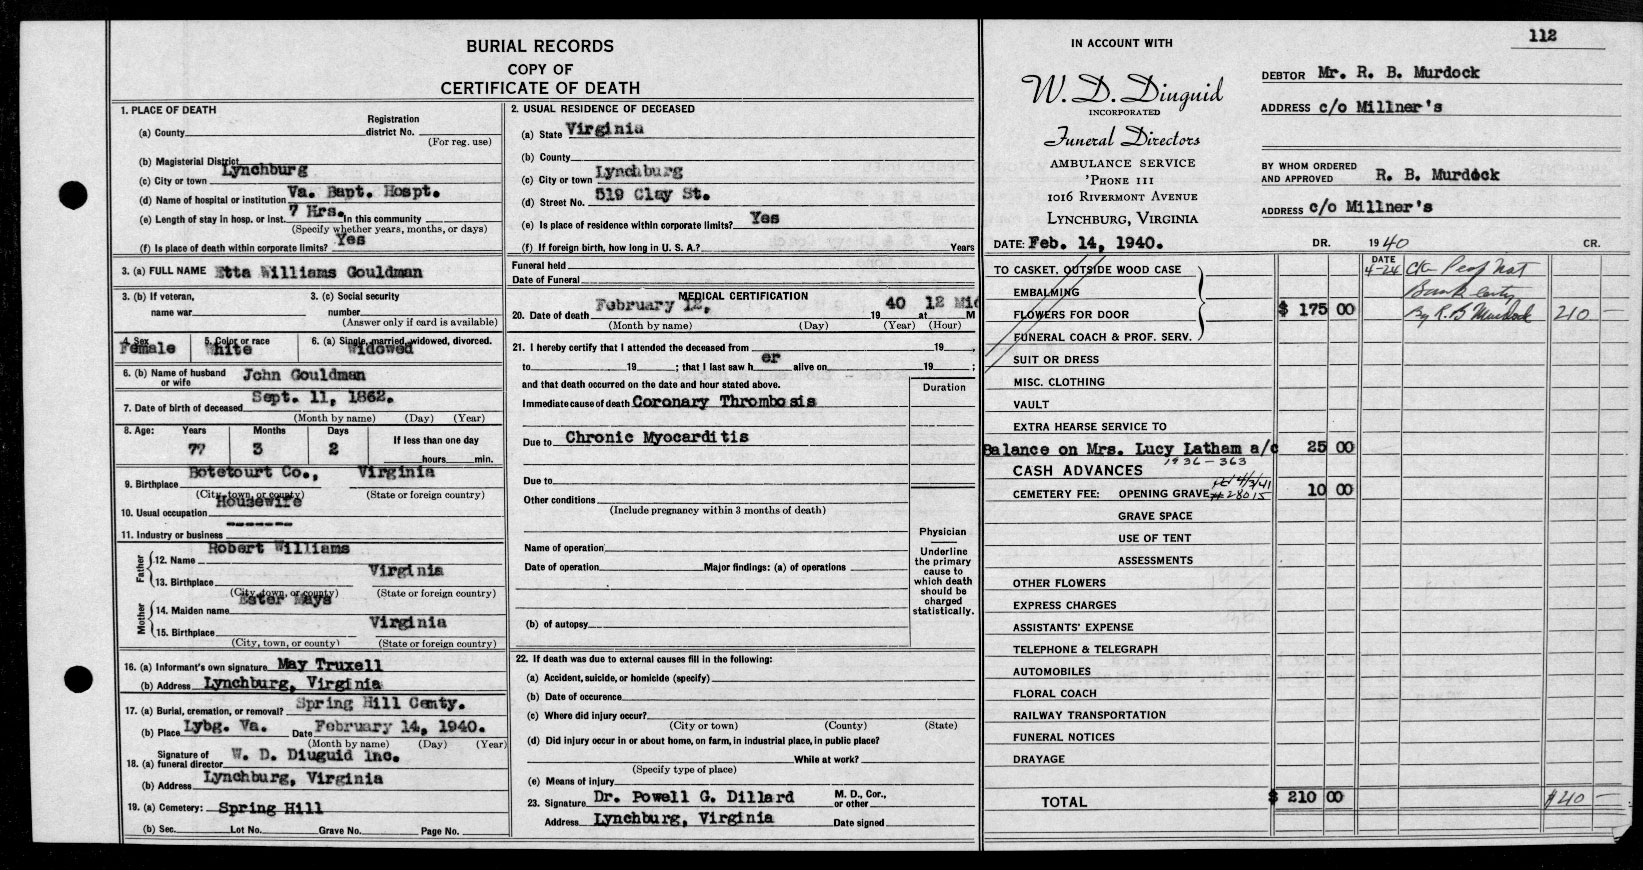 BURIAL RECORDS
COPY OF
CERTIFICATE OF DEATH
1. PLACE OF DEATH
(a) County
Registration
district No.
(For reg. use)
(b) Magisterial District
(c) City or town Lynchburg
(d) Name of hospital or institution Va. Bapt. Hospt.
(e) Length of stay in hosp. or inst. 7 Hrs. In this community
(Specify whether years, months, or days)
(f) Is place of death within corporate limits? Yes
3. (a) FULL NAME Etta Williams Gouldman
3. (b) If veteran,
name war
3. (c) Social security
number
(Answer only if card is available)
4. Sex Female
5. Color or race White
6. (a) Single, married, widowed, divorced. Widowed
6. (b) Name of husband
or wife
John Gouldman
7. Date of birth of deceased Sept. 11, 1862.
(Month by name) (Day) (Year)
8. Age: Years Months Days If less than one day
77 3 2 hours min.
9. Birthplace Botetourt Co., Virginia
(City, town, or county) (State or foreign country)
10. Usual occupation Housewife
11. Industry or business -------
Father
12. Name Robert Williams
13. Birthplace Virginia
(City, town, or county) (State or foreign country)
Mother
14. Maiden name Ester Mays
15. Birthplace Virginia
(City, town, or county) (State or foreign country)
16. (a) Informant's own signature May Truxell
(b) Address Lynchburg, Virginia
17. (a) Burial, cremation, or removal? Spring Hill Cemty.
(b) Place Lybg. Va. Date February 14, 1940.
(Month by name) (Day) (Year)
18. (a) Signature of
funeral director
W. D. Diuguid Inc.
(b) Address Lynchburg, Virginia
19. (a) Cemetery: Spring Hill
(b) Sec. Lot No. Grave No. Page No.
2. USUAL RESIDENCE OF DECEASED
(a) State Virginia
(b) County
(c) City or town Lynchburg
(d) Street No. 519 Clay St.
(e) Is place of residence within corporate limits? Yes
(f) If foreign birth, how long in U. S. A.? Years
Funeral held
Date of Funeral
MEDICAL CERTIFICATION
20. Date of death February 12, 1940 at 12 Mid M
(Month by name) (Day) (Year) (Hour)
21. I hereby certify that I attended the deceased from 19 ,
to 19 ; that I last saw her alive on 19 ;
and that death occurred on the date and hour stated above.
Duration
Immediate cause of death Coronary Thrombosis
Due to Chronic Myocarditis
Due to
Other conditions
(Include pregnancy within 3 months of death)
Name of operation
Date of operation Major findings: (a) of operations
(b) of autopsy
Physician
Underline
the primary
cause to
which death
should be
charged
statistically.
22. If death was due to external causes fill in the following:
(a) Accident, suicide, or homicide (specify)
(b) Date of occurence
(c) Where did injury occur?
(City or town) (County) (State)
(d) Did injury occur in or about home, on farm, in industrial place, in public place?
While at work?
(Specify type of place)
(e) Means of injury
23. Signature Dr. Powell G. Dillard M. D., Cor.,
or other
Address Lynchburg, Virginia Date signed
112
IN ACCOUNT WITH
W. D. Diuguid
INCORPORATED
Funeral Directors
AMBULANCE SERVICE
'PHONE 111
1016 RIVERMONT AVENUE
LYNCHBURG, VIRGINIA
DEBTOR Mr. R. B. Murdock
ADDRESS c/o Millner's
BY WHOM ORDERED
AND APPROVED
R. B. Murdock
ADDRESS c/o Millner's
DATE: Feb. 14, 1940. DR. 1940 CR.
TO CASKET, OUTSIDE WOOD CASE
EMBALMING
FLOWERS FOR DOOR
FUNERAL COACH & PROF. SERV.
$ 175 00
DATE
4-24
Bank
By R. B Murdock 210 —
SUIT OR DRESS
MISC. CLOTHING
VAULT
EXTRA HEARSE SERVICE TO
Balance on Mrs. Lucy Latham a/c 25 00
1936 - 363
CASH ADVANCES
4/3/41
#28015
CEMETERY FEE: OPENING GRAVE 10 00
GRAVE SPACE
USE OF TENT
ASSESSMENTS
OTHER FLOWERS
EXPRESS CHARGES
ASSISTANTS' EXPENSE
TELEPHONE & TELEGRAPH
AUTOMOBILES
FLORAL COACH
RAILWAY TRANSPORTATION
FUNERAL NOTICES
DRAYAGE
TOTAL $ 210 00